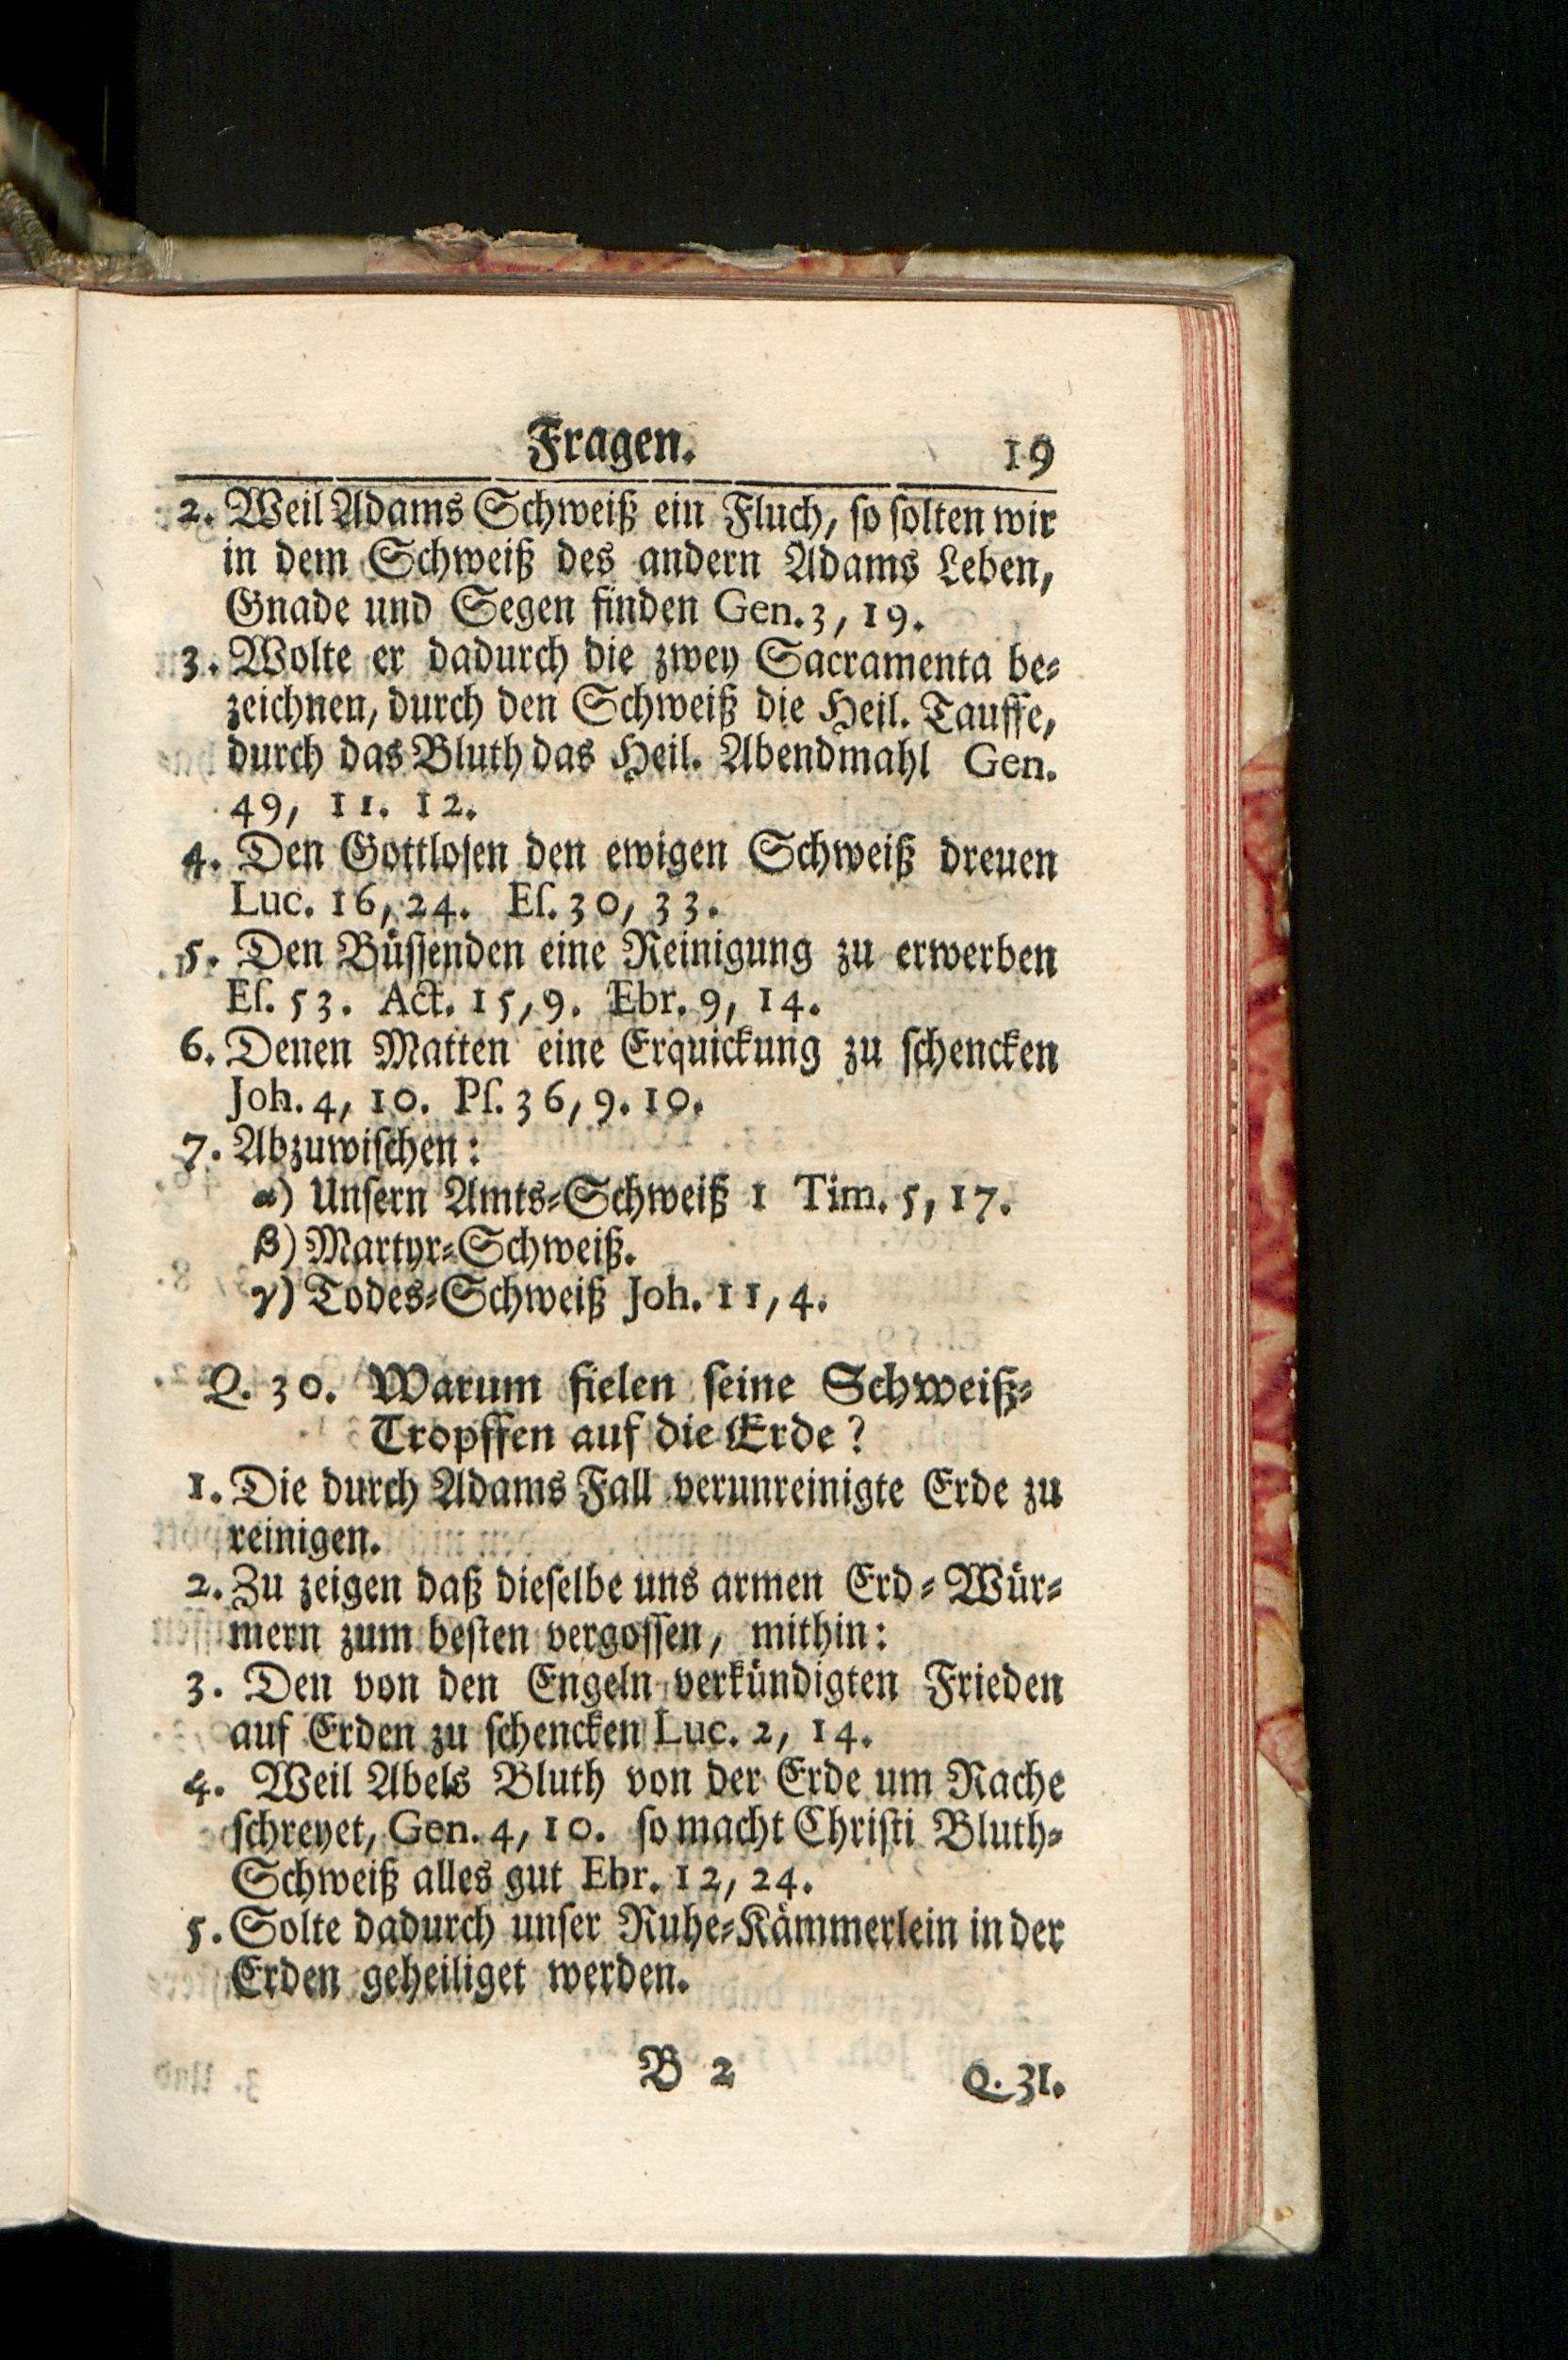 Fragen. 19
2. Weil Adams Schweiß ein Fluch, so solten wir
in dem Schweiß des andern Adams Leben,
Gnade und Segen finden Gen. 3, 19.
3. Wolte er dadurch die zwey Sacramenta be-
zeichnen, durch den Schweiß die Heil. Tauffe,
durch das Bluth das Heil. Abendmahl Gen.
49, 11. 12.
4. Den Gottlosen den ewigen Schweiß dreuen
Luc. 16, 24. Es. 30, 33.
5. Den Büssenden eine Reinigung zu erwerben
Es. 53. Act. 15, 9. Ebr. 9, 14.
6. Denen Matten eine Erquickung zu schencken
Joh. 4, 10. Ps. 36, 9. 10.
7. Abzuwischen:
α) Unsern Amts-Schweiß 1 Tim. 5, 17.
β) Martyr-Schweiß.
γ) Todes-Schweiß Joh. 11, 4.
Q. 30. Warum fielen seine Schweiß-
Tropffen auf die Erde?
1. Die durch Adams Fall verunreinigte Erde zu
reinigen.
2. Zu zeigen daß dieselbe uns armen Erd-Wür-
mern zum besten vergossen, mithin:
3. Den von den Engeln verkündigten Frieden
auf Erden zu schencken Luc. 2, 14.
4. Weil Abels Bluth von der Erde um Rache
schreyet, Gen. 4, 10. so macht Christi Bluth-
Schweiß alles gut Ebr. 12, 24.
5. Solte dadurch unser Ruhe-Kämmerlein in der
Erden geheiliget werden.
B 2 Q. 31.